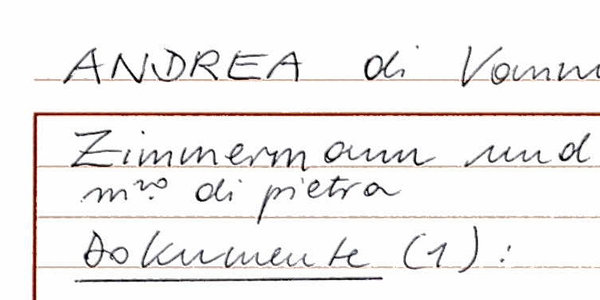 ANDREA di Vann
Zimmermann und
m^ro di pietra
Dokumente (1):